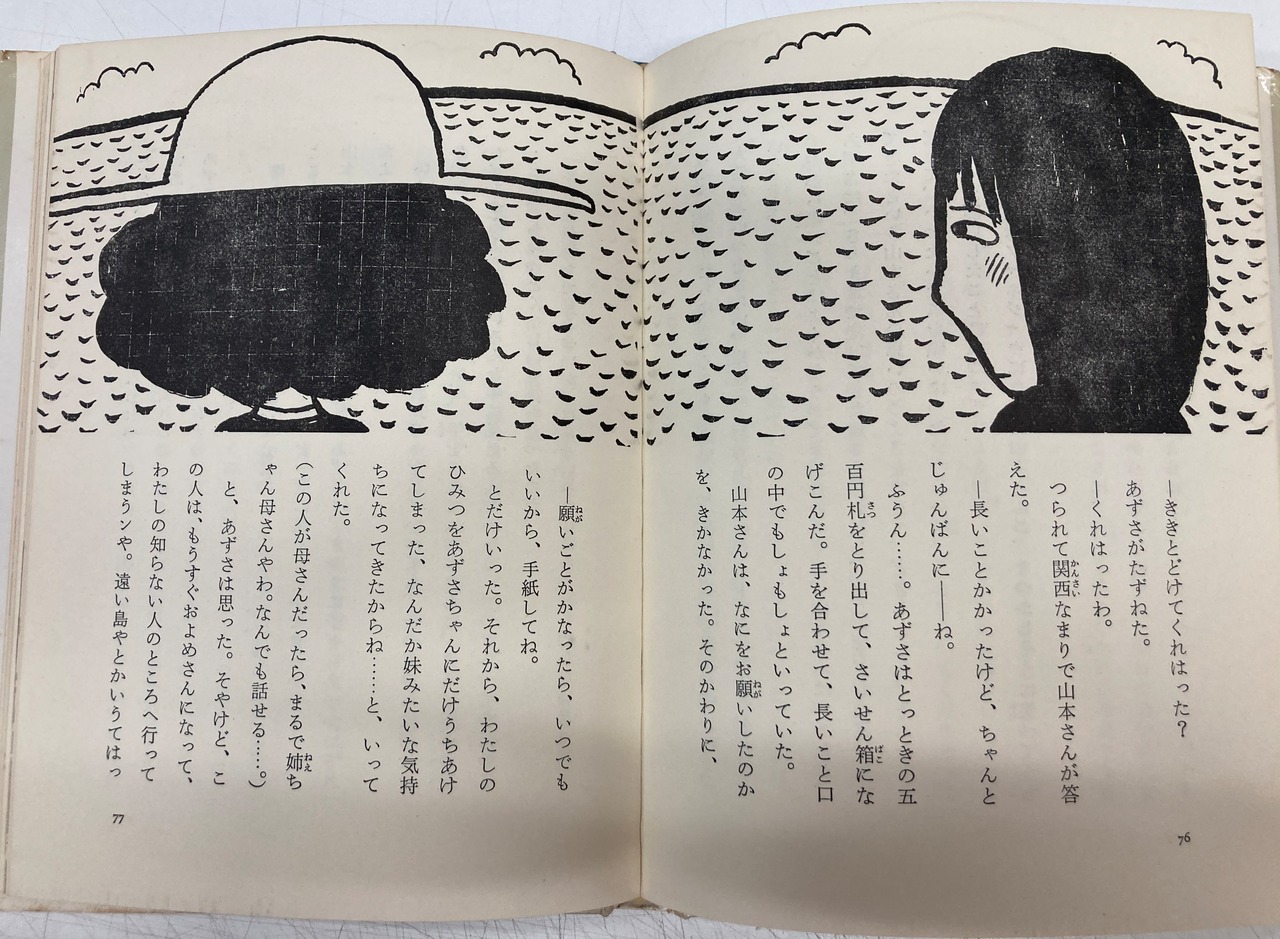 ―ききとどけてくれはった？
あずさがたずねた。
―くれはったわ。
つられて関西なまりで山本さんが答
えた。
―長いことかかったけど、ちゃんと
じゅんばんに――ね。
ふうん……。あずさはとっときの五
百円札をとり出して、さいせん箱にな
げこんだ。手を合わせて、長いこと口
の中でもしょもしょといっていた。
山本さんは、なにをお願いしたのか
を、きかなかった。そのかわりに、
76
―願いごとがかなったら、いつでも
いいから、手紙してね。
とだけいった。それから、わたしの
ひみつをあずさちゃんにだけうちあけ
てしまった、なんだか妹みたいな気持
ちになってきたからね……と、いって
くれた。
（この人が母さんだったら、まるで姉ち
ゃん母さんやわ。なんでも話せる……。）
と、あずさは思った。そやけど、こ
の人は、もうすぐおよめさんになって、
わたしの知らない人のところへ行って
しまうンや。遠い島やとかいうてはっ
77